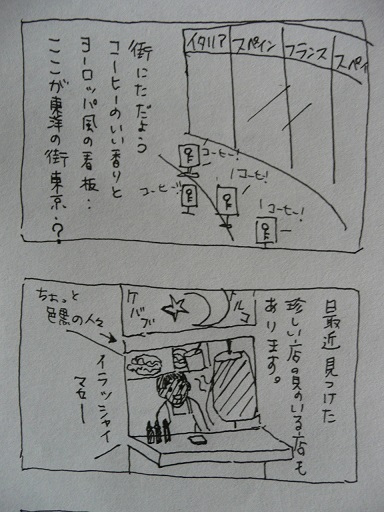 イタリア
スペイン
フランス
スペイ
街にただよう
コーヒーのいい香りと
ヨーロッパ風の看板…
ここが東洋の街東京…?
コーヒー!
コーヒー!
コーヒー!
コーヒー!
最近見つけた
珍しい店員のいる店も
あります。
トルコ
ケバブ
ちょっと
色黒の人々
イラッシャイ
マセー